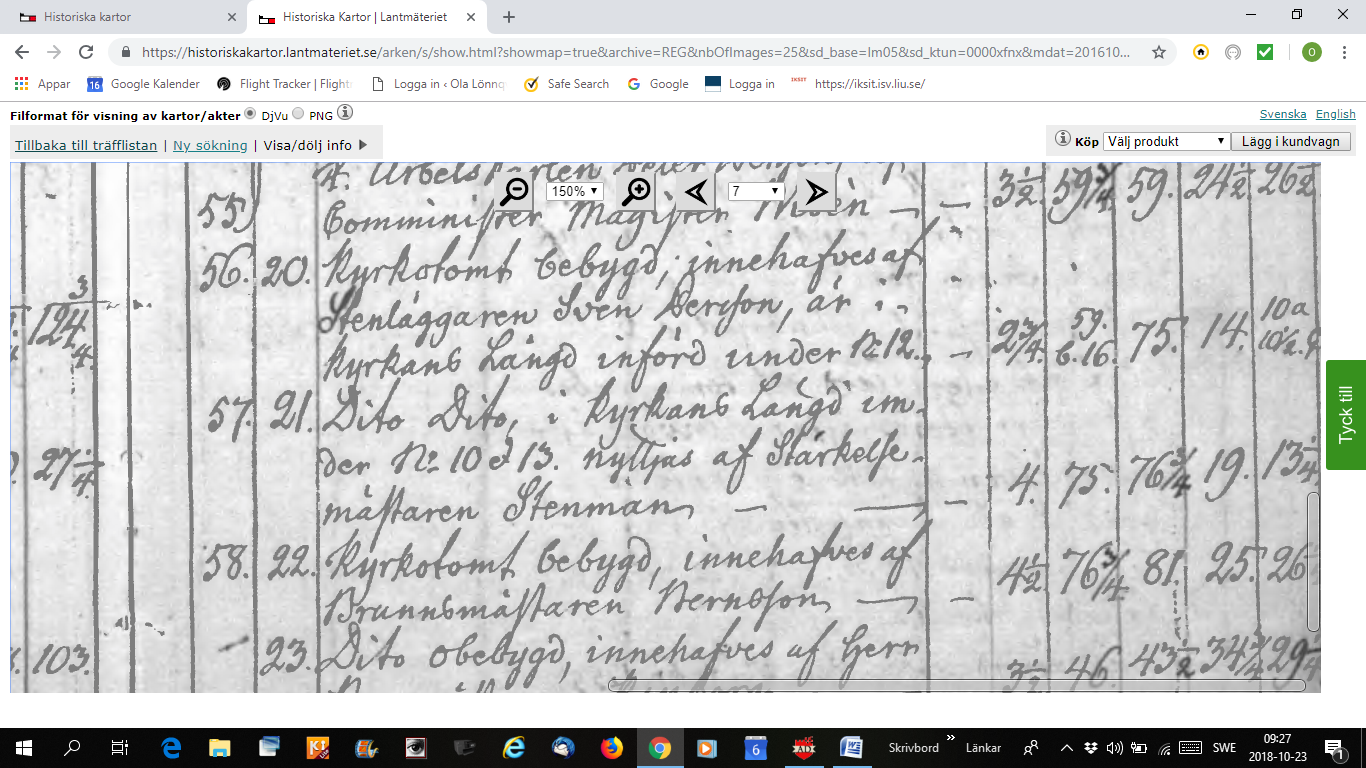 Historiska kartor
Historiska Kartor | Lantmäteriet
https://historiskakartor.lantmateriet.se/arken/s/show.html?showmap=true&archive=REG&nbOfImages=25&sd_base=lm05&sd_ktun=0000xfnx&mdat=201610...
O
Appar
16 Google Kalender
Flight Tracker | Flight
Logga in ‹ Ola Lönnq
Safe Search
Google
IKSIT
Logga in
https://iksit.isv.liu.se/
Filformat för visning av kartor/akter DjVu PNG
Svenska English
Tillbaka till träfflistan | Ny sökning | Visa/dölj info
Köp Välj produkt Lägg i kundvagn
150% 7
55) Comminister Magister 3½. 59¾ 59. 24½ 26½
56. 20. Kyrkotomt bebygd, innehafves af
Stenläggaren Sven Bergson, är i
124¾. Kyrkans Längd införd under No 12. 2¾. 59. 6.16. 75. 14. 10a
57. 21. Dito Dito, i Kyrkans Längd un-
27¼. der No 10 & 13. nyttjas af Stärkelse-
mästaren Stenman 4. 75. 76¾ 19. 13¼
58. 22. Kyrkotomt bebygd, innehafves af
Brunnsmästaren Berngson 4½ 76¾ 81. 25. 26
103. 23. Dito obebygd, innehafves af Herr
3½ 46. 43½ 34¾ 29¼
Tyck till
Skrivbord » Länkar
6
SWE
09:27
2018-10-23
1